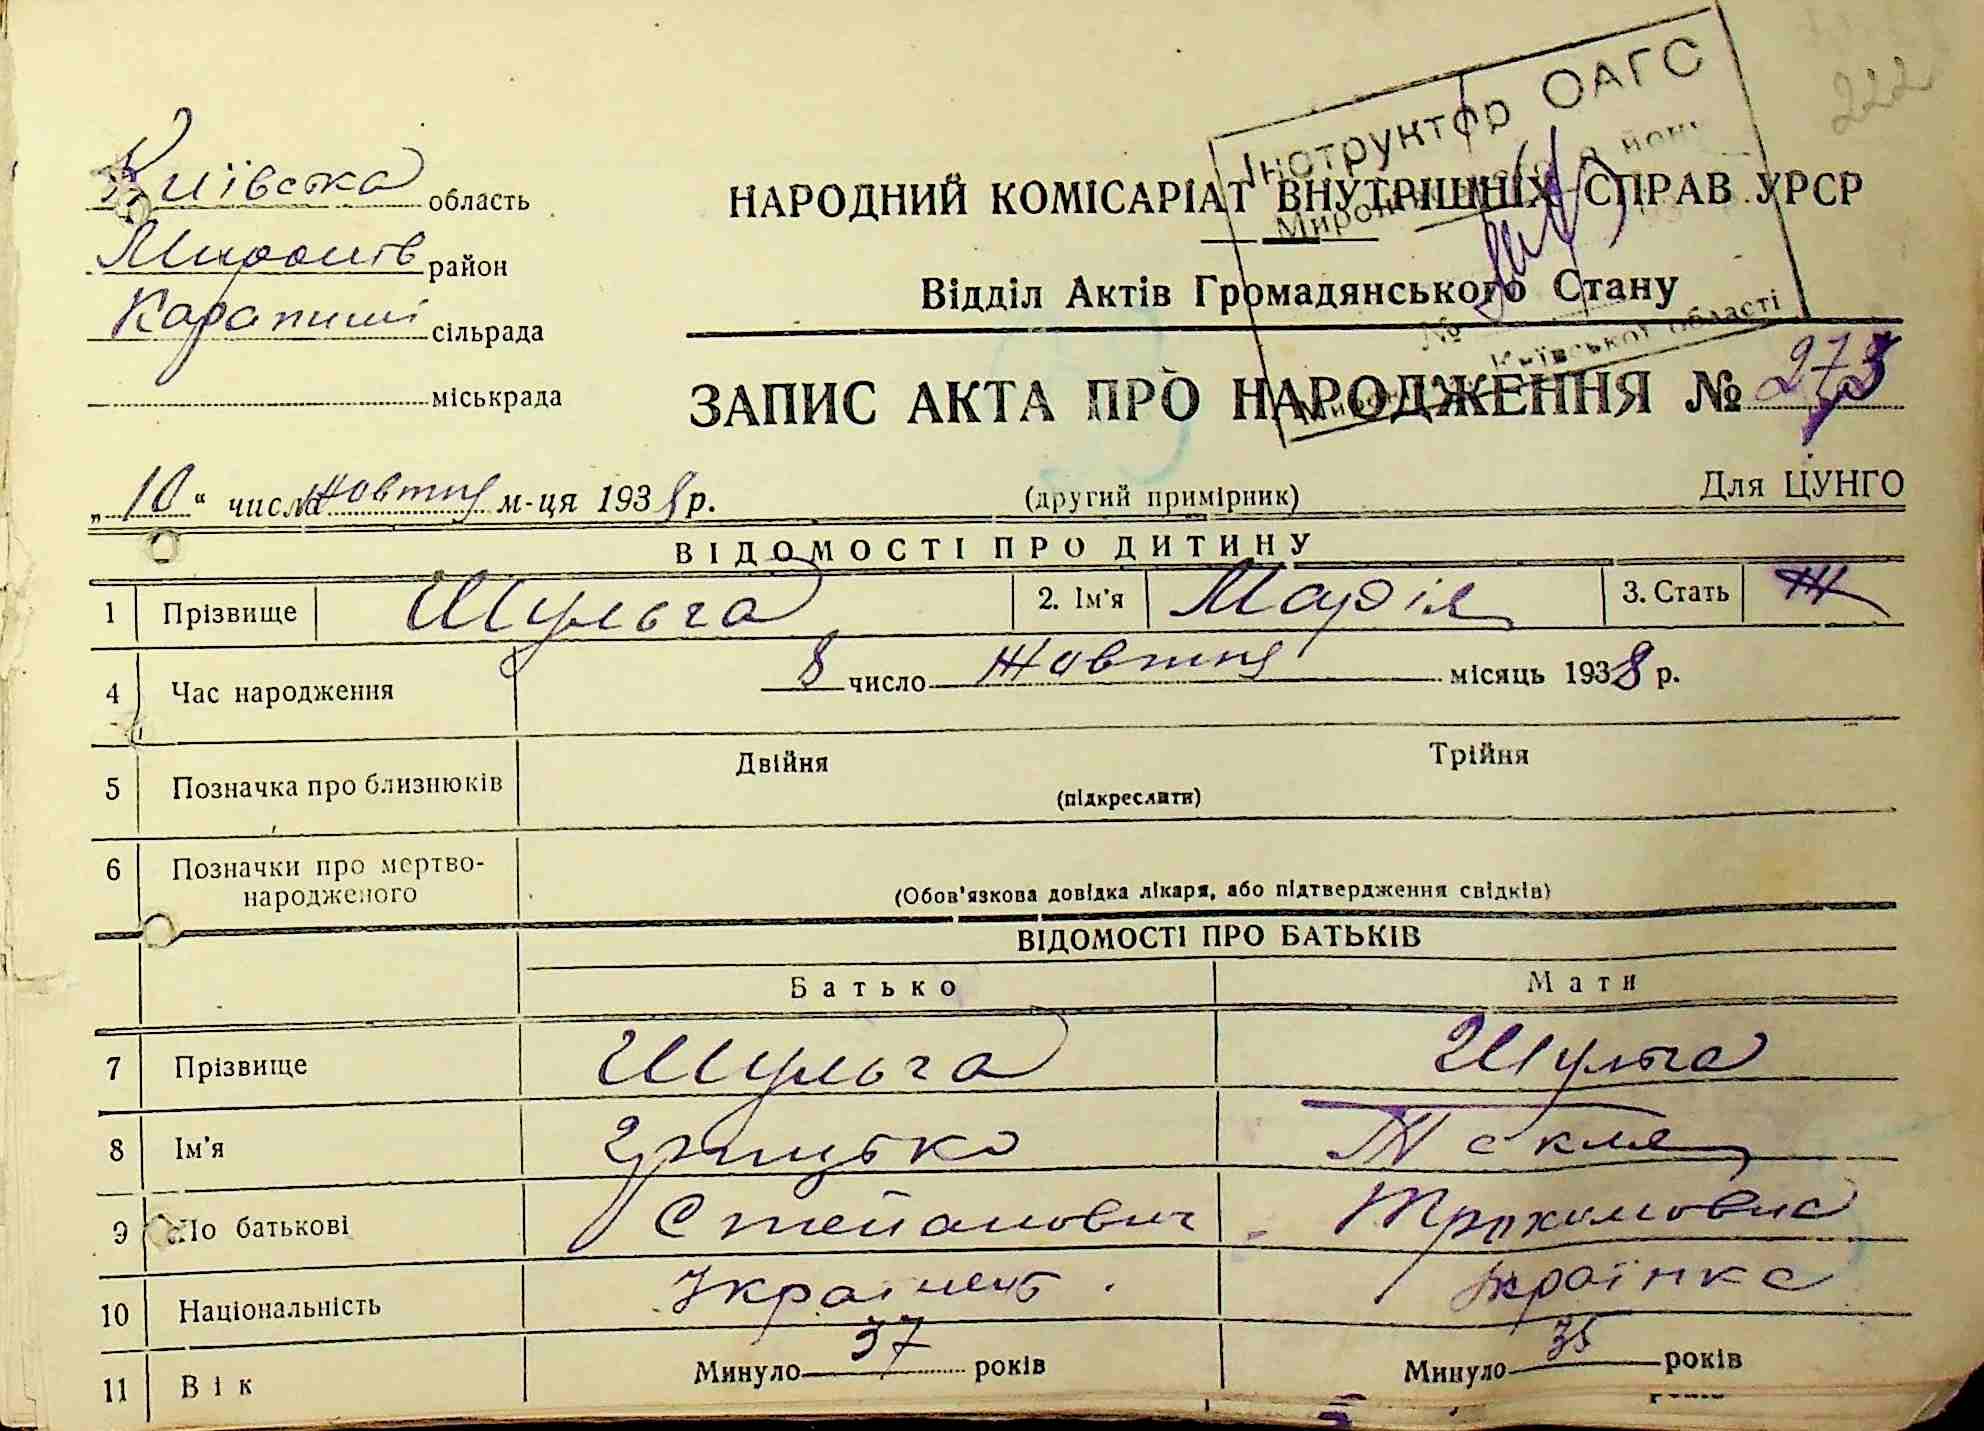 222
Інструктор ОАГС
Київська область
НАРОДНИЙ КОМІСАРІАТ ВНУТРІШНІХ СПРАВ УРСР
Миронів район
Відділ Актів Громадянського Стану
Карапиші сільрада
№ Київської області
міськрада
ЗАПИС АКТА ПРО НАРОДЖЕННЯ № 273
„10“ числа жовтня м-ця 1938 р.
(другий примірник)
Для ЦУНГО
ВІДОМОСТІ ПРО ДИТИНУ
1 Прізвище Шульга 2. Ім'я Марія 3. Стать Ж
4 Час народження 8 число жовтня місяць 1938 р.
5 Позначка про близнюків Двійня Трійня
(підкреслити)
6 Позначки про мертво-
народженого
(Обов'язкова довідка лікаря, або підтвердження свідків)
ВІДОМОСТІ ПРО БАТЬКІВ
Батько Мати
7 Прізвище Шульга Шульга
8 Ім'я Грицько Текля
9 По батькові Степанович Трохимовна
10 Національність Українець Українка
11 Вік Минуло 37 років Минуло 35 років